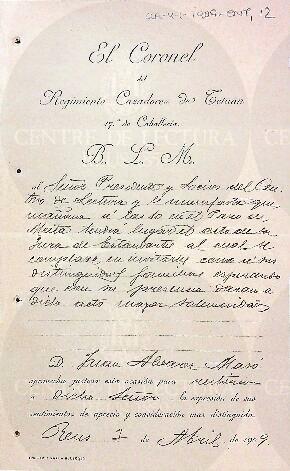 El Coronel
del
Regimiento Cazadores de Tetuan
17.º de Caballería.
B. L. M.
al Señor Presidente y Socios del Cen
tro de Lectura y le manifiesta que
mañana a las 10 en el Paseo
Mata tendrá lugar el acto de la
Jura de Estandartes al cual se
complace en invitarle como a sus
distinguidas familias esperando
que con su presencia daran a
dicho acto mayor solemnidad
D. Juan Alvarez Masó
aprovecha gustoso esta ocasión para reiterar
a dicho Señor la expresión de sus
sentimientos de aprecio y consideración mas distinguida.
Reus 3 de Abril de 1909.